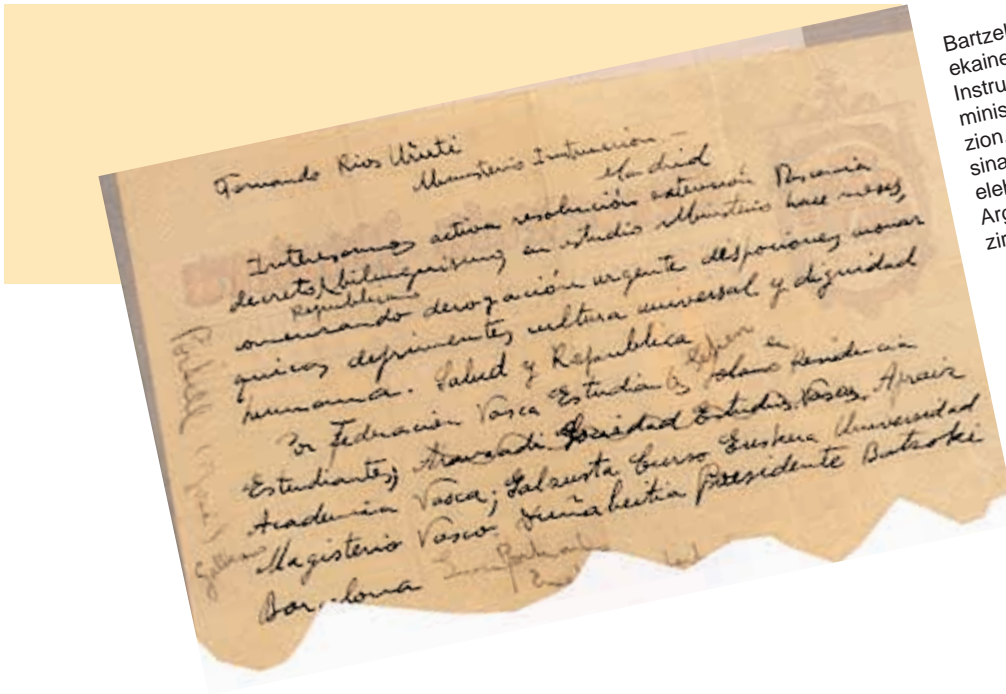 Fernando Rios Urruti
Ministerio Instrucción –
Madrid
Interesamos activa resolución extensión Vasconia
decreto bilinguismo en estudio Ministerio hace meses,
Republicano
derogación urgente monar
quicas deprimentes cultura universal y dignidad
humana. Salud y Republica
Por Federación Vasca Estudian Solano Residencia
Estudiantes; Aranzadi Sociedad Estudios Vascos, Apraiz
Academia Vasca; Galzusta Curso Euskera Universidad
Magisterio Vasco. Zuñabeitia Presidente Batzoki
Barcelona
Portell
Bartzel
ekaine
Instru
minis
zion
sina
elel
Arg
zir